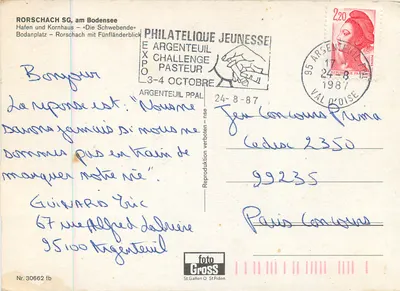 RORSCHACH SG, am Bodensee
Hafen und Kornhaus - «Die Schwebende»
Bodanplatz - Rorschach mit Fünfländerblick
PHILATELIQUE JEUNESSE
EXPO
ARGENTEUIL
CHALLENGE
PASTEUR
3-4 OCTOBRE
ARGENTEUIL PPAL
24-8-87
2,20
95 ARGENTEUIL
17
24-8
1987
VAL D'OISE
Bonjour
La réponse est: "Nous ne
savons jamais si nous ne
sommes pas en train de
manquer notre vie".
GUINARD Eric
67 rue Alfred
95100 Argenteuil
Jeu Concours Prima
Cedex 2350
99235
Paris Concours
Reproduction verboten - nse
foto
GROSS
St. Gallen
Nr. 30662 fb